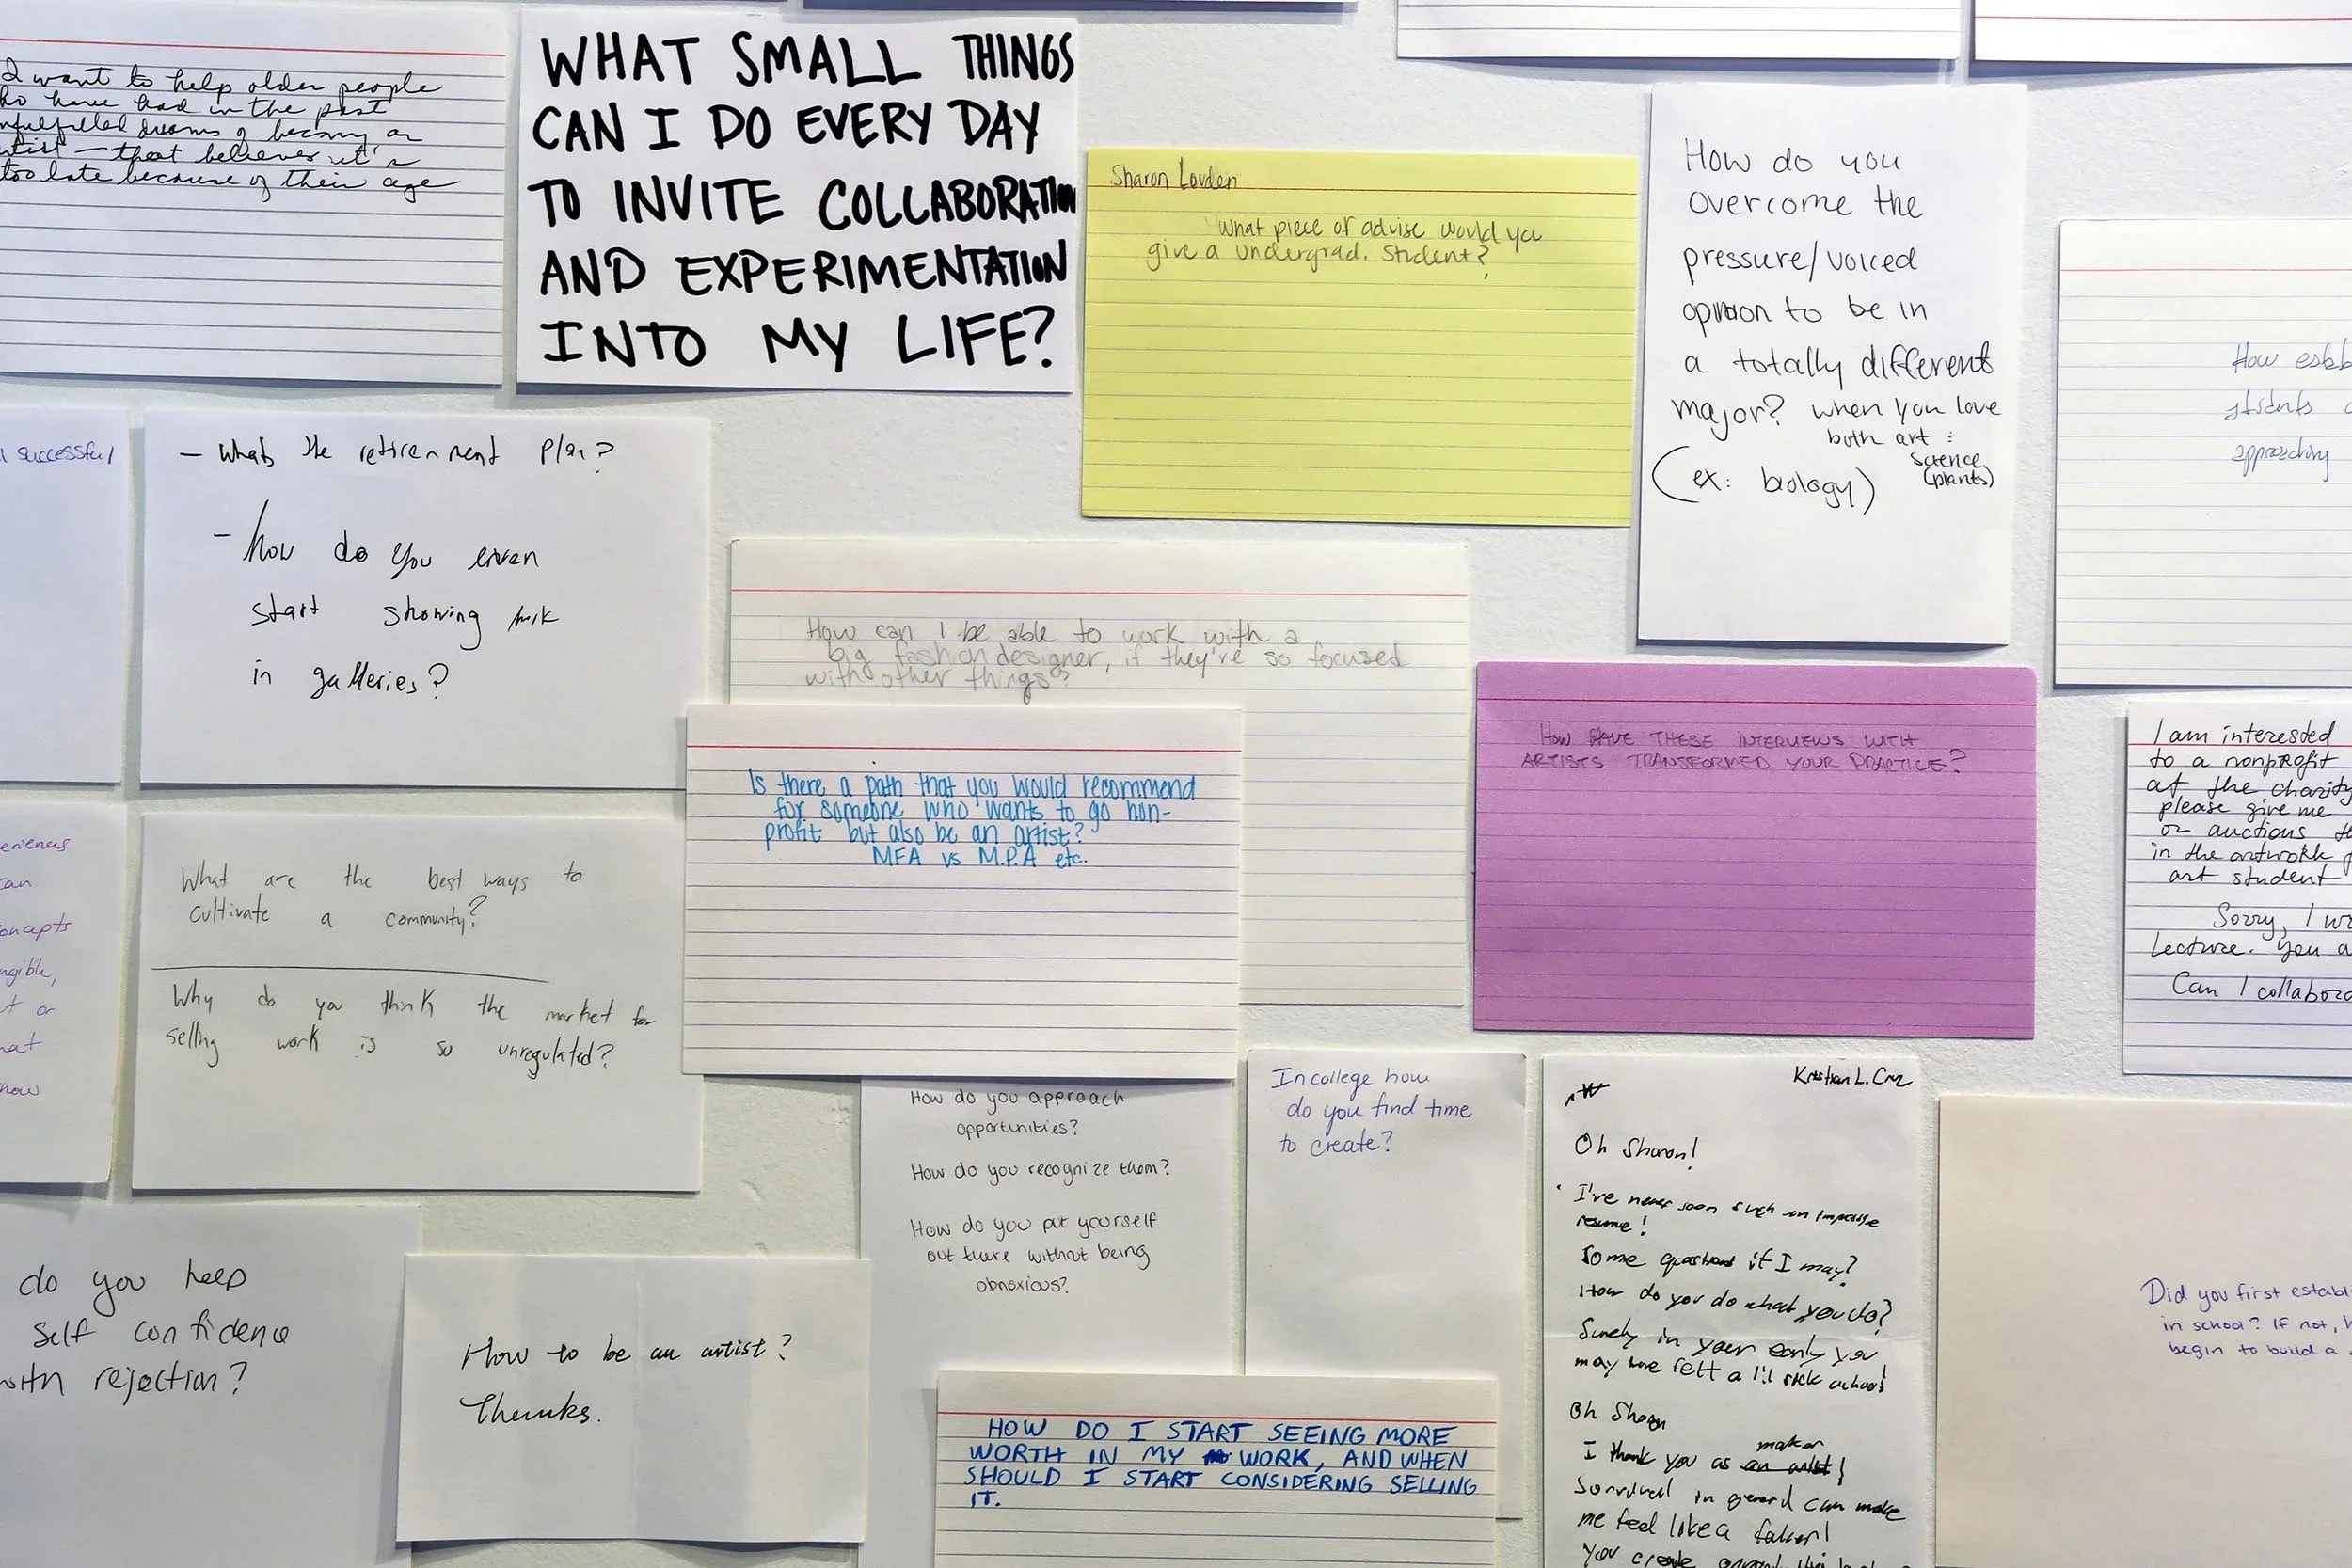 I want to help older people
ho have had in the past
nfulfilled dreams of becoming an
rtist — that believes it's
too late because of their age
WHAT SMALL THINGS
CAN I DO EVERY DAY
TO INVITE COLLABORATION
AND EXPERIMENTATION
INTO MY LIFE?
Sharon Louden
What piece of advise would you
give a undergrad. Student?
How do you
overcome the
pressure/voiced
opinion to be in
a totally different
major? when you love
both art :
science
(plants)
(ex: biology)
How estab
students
approaching
successful
- whats the retirement plan?
- how do you even
start showing work
in galleries?
How can I be able to work with a
big fashion designer, if they're so focused
with other things?
Is there a path that you would recommend
for someone who wants to go non-
profit but also be an artist?
MFA vs M.P.A etc.
HOW HAVE THESE INTERVIEWS WITH
ARTISTS TRANSFORMED YOUR PRACTICE?
I am interested
to a nonprofit
at the charity
please give me
or auctions th
in the artwork
art student
Sorry, I w
lecture. You a
Can I collabora
eriences
can
oncepts
ngible,
t or
hat
how
What are the best ways to
cultivate a community?
Why do you think the market for
selling work is so unregulated?
How do you approach
opportunities?
How do you recognize them?
How do you put yourself
out there without being
obnoxious?
In college how
do you find time
to create?
Kristian L. Cruz
Oh Sharon!
I've never seen such an impressive
resume!
Some questions if I may?
How do you do what you do?
Surely in your early you
may have felt a lil
Oh Sharon
I thank you as maker!
in general can make
me feel like a faker!
you create
Did you first establi
in school? If not, h
begin to build a
do you keep
self confidence
with rejection?
How to be an artist?
Thanks.
HOW DO I START SEEING MORE
WORTH IN MY WORK, AND WHEN
SHOULD I START CONSIDERING SELLING
IT.